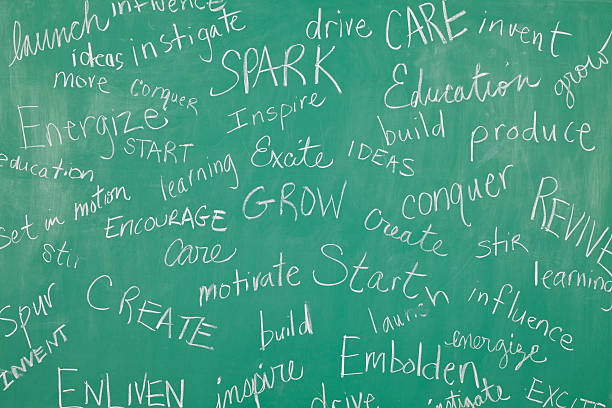 launch
influence
ideas instigate
more
conquer
SPARK
drive CARE invent
grow
Education
Energize
START
Inspire
build produce
education
learning
Excite
IDEAS
set in motion
ENCOURAGE
GROW
conquer
REVIVE
create
stir
Stir
Care
motivate Start
learning
Spur
CREATE
launch
influence
INVENT
build
energize
Embolden
ENLIVEN inspire
drive
instigate
EXCITE